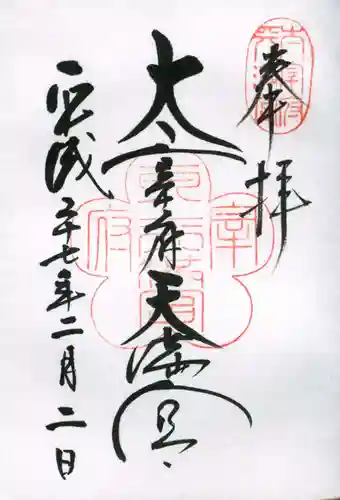 奉拝
太宰府天満宮
平成二十七年二月二日